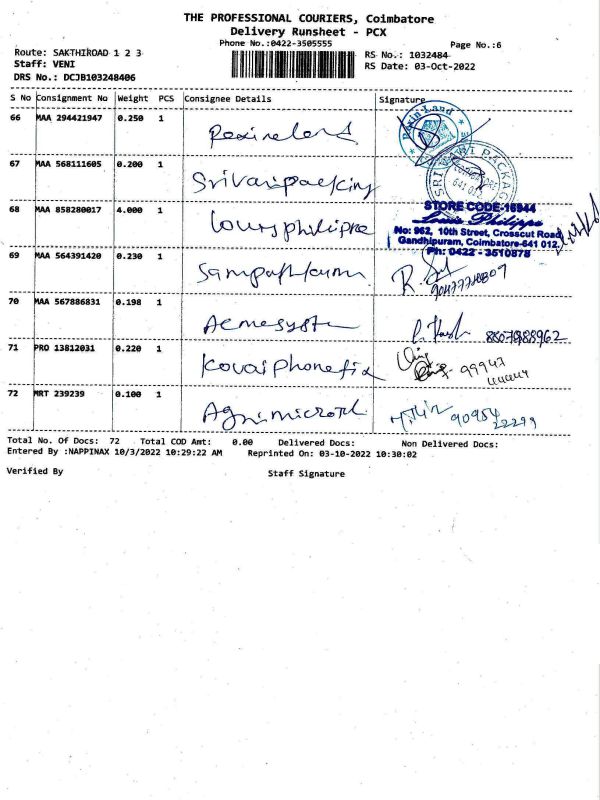 THE PROFESSIONAL COURIERS, Coimbatore
Delivery Runsheet - PCX
Phone No.:0422-3505555
Page No.:6
Route: SAKTHIROAD 1 2 3
RS No.: 1032484
Staff: VENI
RS Date: 03-Oct-2022
DRS No.: DCJB103248406
S No Consignment No Weight PCS Consignee Details Signature
66 MAA 294421947 0.250 1 Rexineland
Rexin Land
67 MAA 568111605 0.200 1 Srivaripacking
SRI VARI PACKAG
641 012
68 MAA 858280017 4.000 1 Louisphilippe
STORE CODE-16944
Louis Philippe
No: 962, 10th Street, Crosscut Road
Gandhipuram, Coimbatore-641 012.
Ph: 0422 - 3510878
69 MAA 564391420 0.230 1 Sampathkumar
70 MAA 567886831 0.198 1 Acmesystem
71 PRO 13812031 0.220 1 Kovaiphonefix
99947
44449
72 MRT 239239 0.100 1
90954
22299
Total No. Of Docs: 72 Total COD Amt: 0.00 Delivered Docs: Non Delivered Docs:
Entered By :NAPPINAX 10/3/2022 10:29:22 AM Reprinted On: 03-10-2022 10:30:02
Verified By Staff Signature